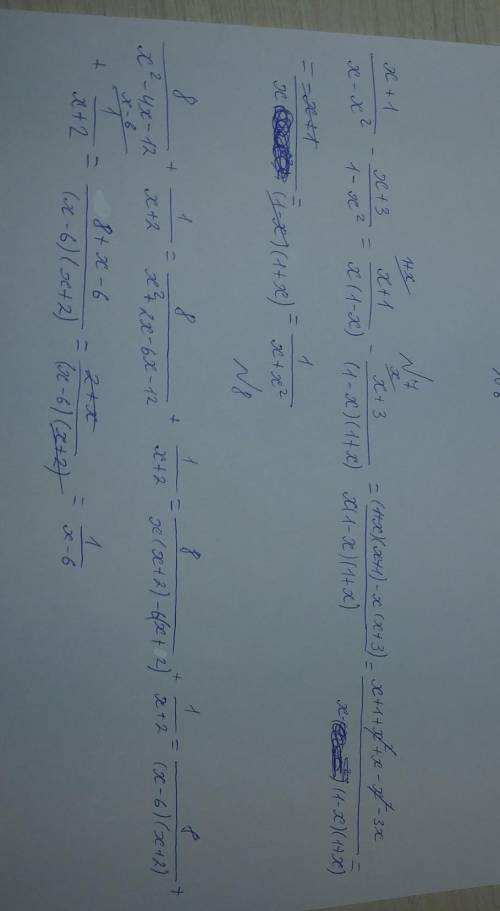 N7
(x+1)/(x-x²) - (x+3)/(1-x²) = (x+1)/(x(1-x)) ^(1+x) - (x+3)/((1-x)(1+x)) ^(x) = ((1+x)(x+1)-x(x+3))/(x(1-x)(1+x)) = (x+1+x²+x-x²-3x)/(x(1-x)(1+x)) =
= (-x+1)/(x(1-x)(1+x)) = 1/(x+x²)
N8
8/(x²-4x-12) + 1/(x+2) = 8/(x²+2x-6x-12) + 1/(x+2) = 8/(x(x+2)-6(x+2)) + 1/(x+2) = 8/((x-6)(x+2)) +
+ 1/(x+2) ^(x-6) = (8+x-6)/((x-6)(x+2)) = (2+x)/((x-6)(x+2)) = 1/(x-6)